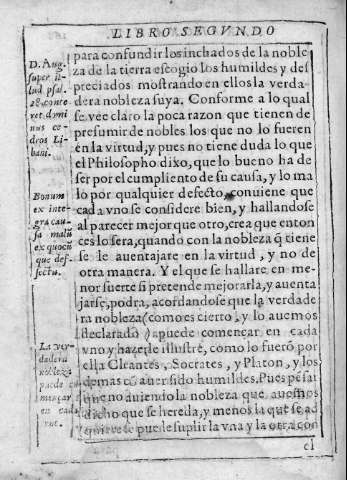 LIBRO SEGVNDO
D. Aug.
super il-
lud psal.
28. confre
get domi
nus ce-
dros Li-
bani.
Bonum
ex inte-
gra cau-
sa malũ
ex quocũ
que def-
fectu.
La ver-
dadera
nobleza
puede co
mẽçar
en cada
vno.
para confundir los inchados de la noble
za de la tierra escogio los humildes y des
preciados mostrando en ellos la verda-
dera nobleza suya. Conforme a lo qual
se vee claro la poca razon que tienen de
presumir de nobles los que no lo fueren
en la virtud, y pues no tiene duda lo que
el Philosopho dixo, que lo bueno ha de
ser por el cumpliento de su causa, y lo ma
lo por qualquier defecto, conuiene que
cada vno se considere bien, y hallandose
al parecer mejor que otro, crea que enton
ces lo sera, quando con la nobleza q̃ tiene
se le auentajare en la virtud, y no de
otra manera. Y el que se hallare en me-
nor suerte si pretende mejorarla, y auenta
jarse, podra, acordandose que la verdade
ra nobleza (como es cierto, y lo auemos
declarado) puede començar en cada
vno y hazerle illustre, como lo fuerõ por
ella Cleantes, Socrates, y Platon, y los
demas cõ auer sido humildes. Pues
que no auiendo la nobleza que auemos
dicho que se hereda, y menos la que se ad
quiere se puede suplir la vna y la otra con
el